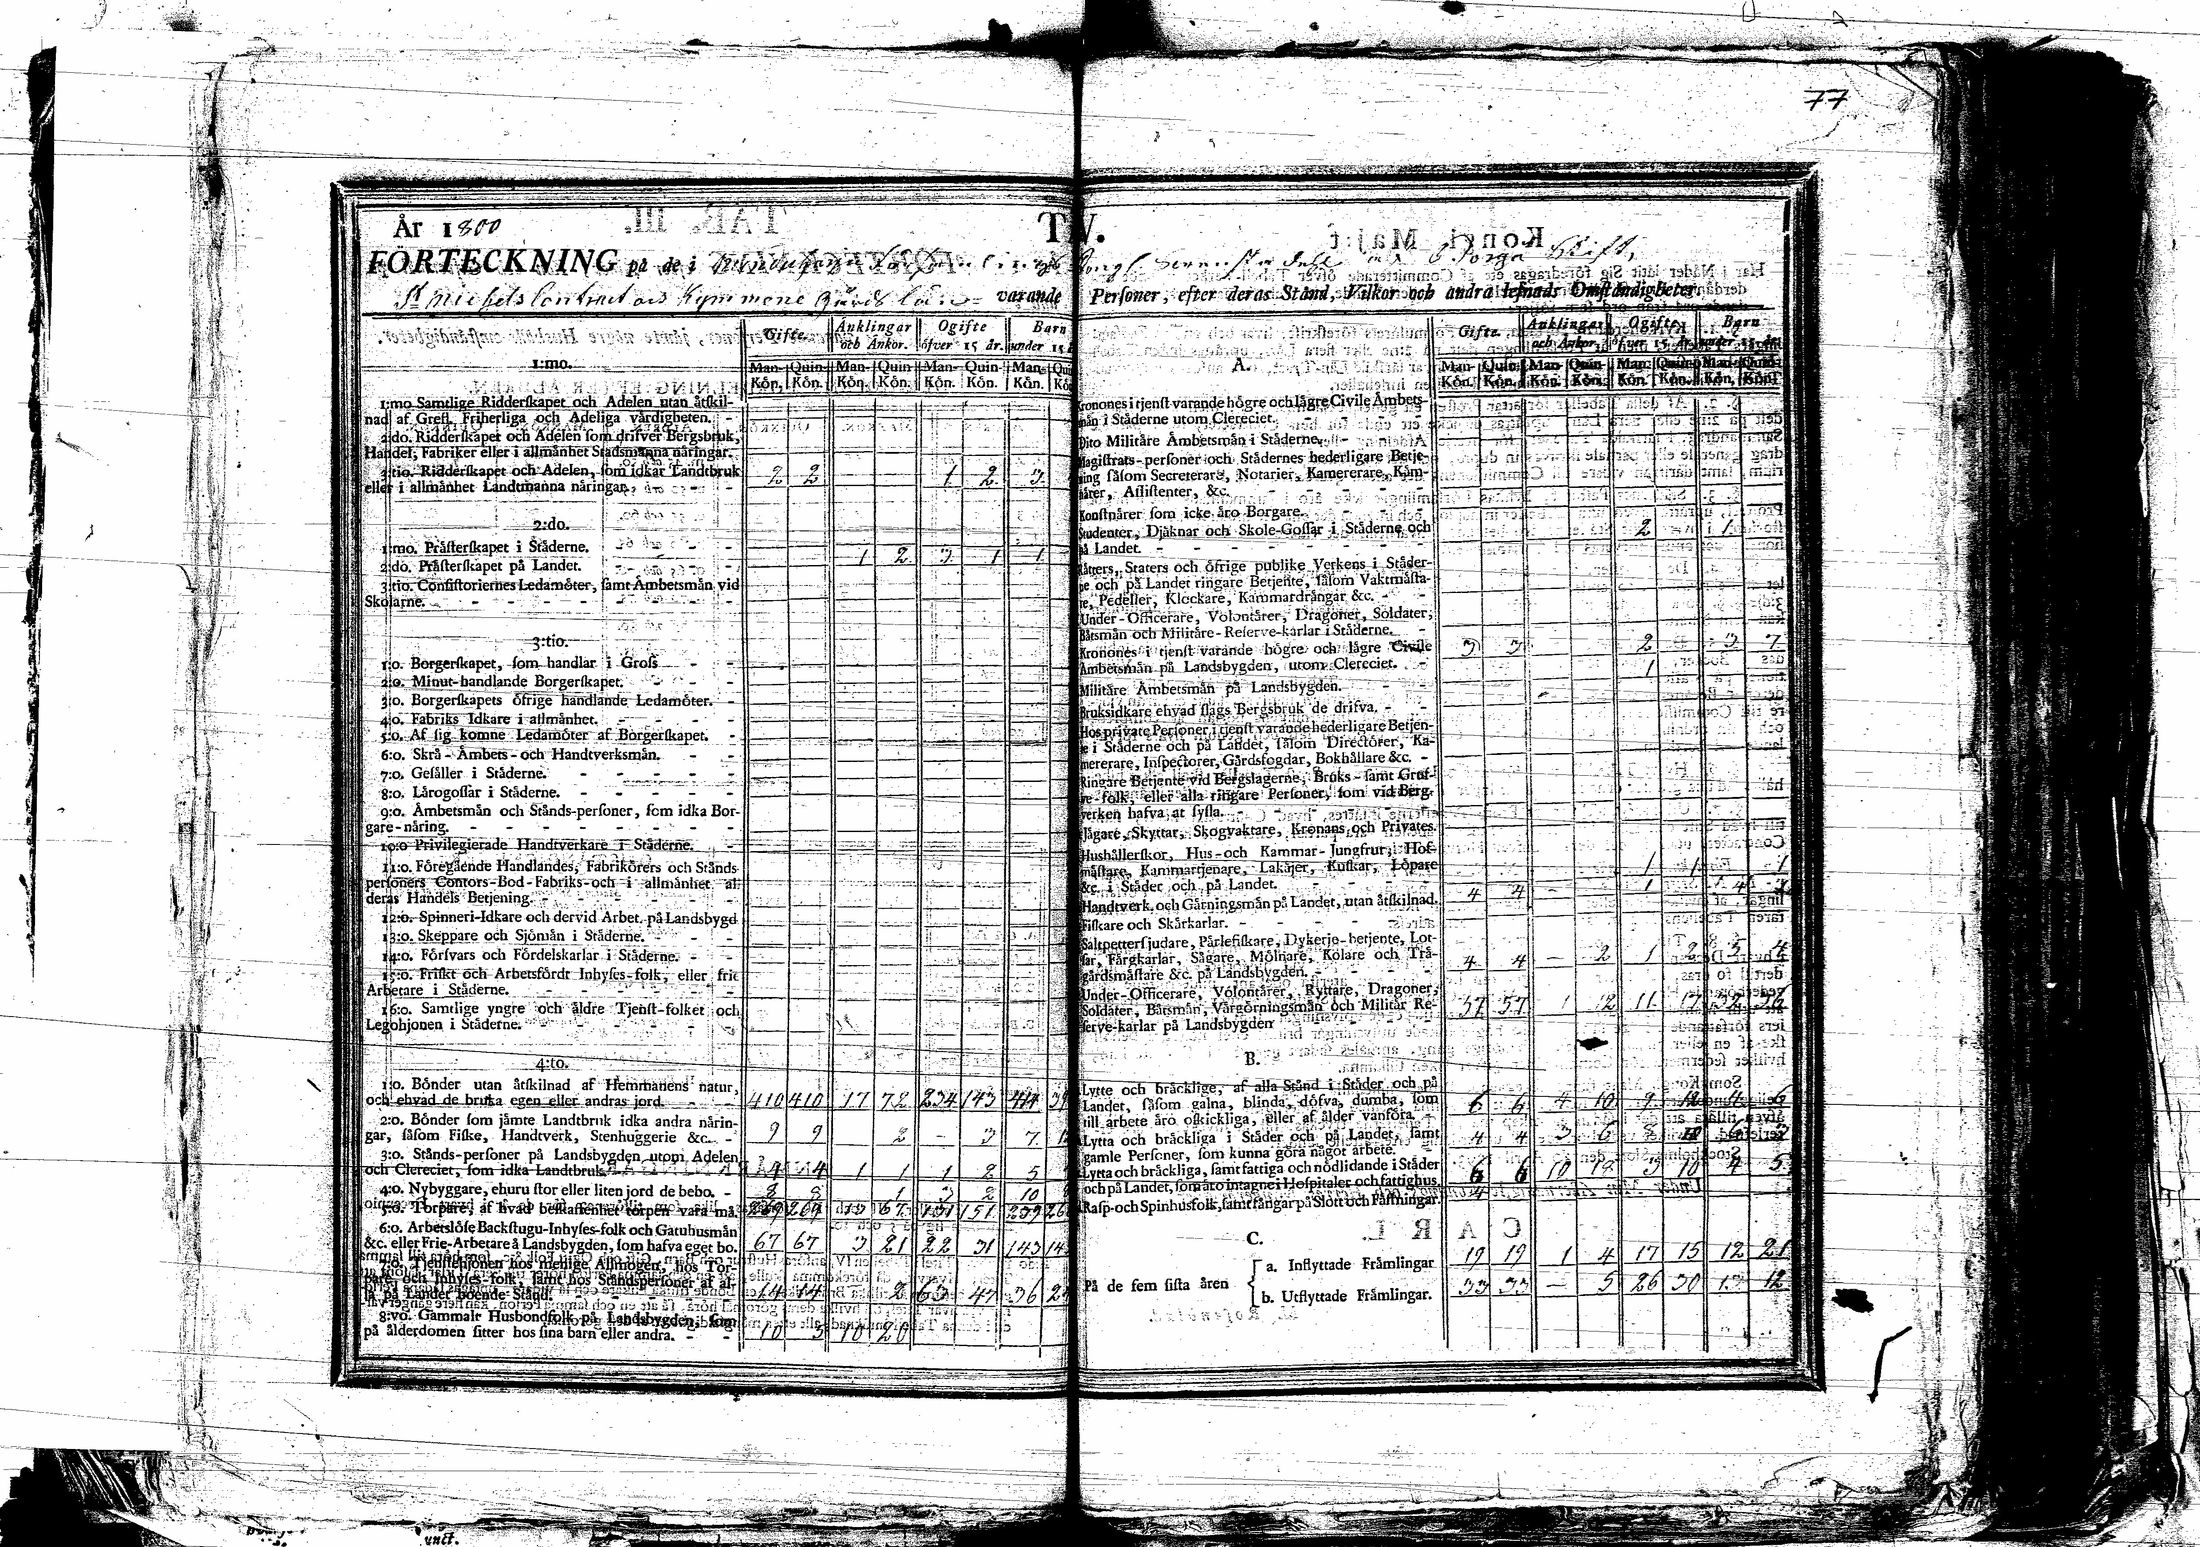 77
År 1800
T IV.
FÖRTECKNING på de i
Stift,
St Michels Contract och Kymmene gårds län varande Personer, efter deras Stånd, Vilkor och andra lefnads Omståndigheter.
Gifte. Änklingar och Änkor. Ogifte öfver 15 år. Barn under 15
Man-Kön. Quin-Kön. Man-Kön. Quin-Kön. Man-Kön. Quin-Kön. Man-Kön.
1:mo.
1:mo Samtlige Ridderſkapet och Adelen utan åtſkil-
nad af Grefl. Friherliga och Adeliga vårdigheten.
2:do. Ridderſkapet och Adelen ſom drifver Bergsbruk,
Handel, Fabriker eller i allmånhet Stadsmanna nåringar.
3:tio. Ridderſkapet och Adelen, ſom idkar Landtbruk 2 2 1 2 3
eller i allmånhet Landtmanna nåringar.
2:do.
1:mo. Pråſterſkapet i Ståderne.
2:do. Pråſterſkapet på Landet. 1 2 3 1 1
3:tio. Conſiſtoriernes Ledamöter, ſamt Åmbetsmån vid
Skolarne.
3:tio.
1:o. Borgerſkapet, ſom handlar i Groſs
2:o. Minut-handlande Borgerſkapet.
3:o. Borgerſkapets öfrige handlande Ledamöter.
4:o. Fabriks Idkare i allmånhet.
5:o. Af ſig komne Ledamöter af Borgerſkapet.
6:o. Skrå-Åmbets-och Handtverksmån.
7:o. Geſåller i Ståderne.
8:o. Lårogoſſar i Ståderne.
9:o. Åmbetsmån och Stånds-perſoner, ſom idka Bor-
gare-nåring.
10:o Privilegierade Handtverkare i Ståderne.
11:o. Föregående Handlandes, Fabrikörers och Stånds
perſoners Contors-Bod-Fabriks-och i allmånhet al
deras Handels Betjening.
12:o. Spinneri-Idkare och dervid Arbet. på Landsbygd
13:o. Skeppare och Sjömån i Ståderne.
14:o. Förſvars och Fördelskarlar i Ståderne.
15:o. Friſkt och Arbetsfördt Inhyſes-folk, eller frie
Arbetare i Ståderne.
16:o. Samtlige yngre och åldre Tjenſt-folket och
Legohjonen i Ståderne.
4:to.
1:o. Bönder utan åtſkilnad af Hemmanens natur,
och ehvad de bruka egen eller andras jord. 410 410 17 72 234 143
2:o. Bönder ſom jåmte Landtbruk idka andra nårin-
gar, ſåſom Fiſke, Handtverk, Stenhuggerie &c. 9 9 2 - 3 7
3:o. Stånds-perſoner på Landsbygden utom Adelen
och Clereciet, ſom idka Landtbruk. 4 4 1 1 1 2 5
4:o. Nybyggare, ehuru ſtor eller liten jord de bebo. 8 8 1 3 2 10
5:o. Torpare, af hvad beſkaffenhet torpen vara må. 269 269 13 67 131 151 239
6:o. Arbetslöſe Backſtugu-Inhyſes-folk och Gatuhusmån
&c. eller Frie-Arbetare å Landsbygden, ſom hafva eget bo. 67 67 3 21 22 31 143
7:o. Tjenſtehjonen hos menige Allmogen, hos Tor-
pare och Inhyſes-folk, ſamt hos Ståndsperſoner af al-
la på Landet boende Stånd. 14 14 2 63 47 36
8:vo. Gammalt Husbondfolk på Landsbygden, ſom
på ålderdomen ſitter hos ſina barn eller andra. 10 3 10 20
Gifte. Änklingar och Änkor. Ogifte öfver 15. År. Barn under 15 år.
Man-Kön. Quin-Kön. Man-Kön. Quin-Kön. Man-Kön. Quin-Kön. Man-Kön. Quin-Kön.
A.
Kronones i tjenſt varande högre och lågre Civile Åmbets-
mån i Ståderne utom Clereciet.
Dito Militåre Åmbetsmån i Ståderne.
Magiſtrats-perſoner och Stådernes hederligare Betje-
ning ſåſom Secreterare, Notarier, Kamererare, Kåm-
nårer, Aſſiſtenter, &c.
Konſtnårer ſom icke åro Borgare.
Studenter, Djåknar och Skole-Goſſar i Ståderne och 2 1
på Landet.
Råtters, Staters och öfrige publike Verkens i Ståder-
ne och på Landet ringare Betjente, ſåſom Vaktmåſta-
re, Pedeller, Klockare, Kammardrångar &c.
Under-Officerare, Volontårer, Dragoner, Soldater,
Båtsmån och Militåre-Reſerve-karlar i Ståderne.
Kronones i tjenſt varande högre och lågre Civile 3 3 2 3 7
Åmbetsmån på Landsbygden, utom Clereciet. 1
Militåre Åmbetsmån på Landsbygden.
Bruksidkare ehvad ſlags Bergsbruk de drifva.
Hos private Perſoner i tjenſt varande hederligare Betjen-
te i Ståderne och på Landet, ſåſom Directörer, Ka-
mererare, Inſpectorer, Gårdsfogdar, Bokhållare &c.
Ringare Betjente vid Bergslagerne, Bruks-ſamt Gruf-
ve-folk, eller alla ringare Perſoner, ſom vid Berg-
verken hafva at ſyſla.
Jågare, Skyttar, Skogvaktare, Kronans och Privates.
Hushållerſkor, Hus-och Kammar-Jungfrur, Hof-
måſtare, Kammartjenare, Lakåjer, Kuſkar, Löpare 1 1 1
&c. i Ståder och på Landet.
Handtverk och Gårningsmån på Landet, utan åtſkilnad. 4 4 - 1 1 4
Fiſkare och Skårkarlar.
Saltpetterſjudare, Pårlefiſkare, Dykerie-betjente, Lot-
ſar, Fårgkarlar, Sågare, Mölnare, Kolare och Trå- 4 4 - 2 1 2 3 4
gårdsmåſtare &c. på Landsbygden.
Under-Officerare, Volontårer, Ryttare, Dragoner,
Soldater, Båtsmån, Vårgörningsmån och Militår Re- 57 57 1 12 11 17 32 36
ſerve-karlar på Landsbygden
B.
Lytte och bråcklige, af alla Stånd i Ståder och på
Landet, ſåſom galna, blinda, döfva, dumba, ſom 6 6 4 10 9 12 4 6
till arbete åro oſkickliga, eller af ålder vanföra.
Lytta och bråckliga i Ståder och på Landet, ſamt 4 4 3 6 8 10 6 3
gamle Perſoner, ſom kunna göra något arbete.
Lytta och bråckliga, ſamt fattiga och nödlidande i Ståder 6 6 10 18 3 10 4 5
och på Landet, ſom åro intagne i Hoſpitaler och fattighus.
Raſp-och Spinhusfolk, ſamt fångar på Slott och Fåſtningar.
C.
På de ſem ſiſta åren
a. Inflyttade Fråmlingar 19 19 1 4 17 15 12 21
b. Utflyttade Fråmlingar. 33 33 - 5 26 30 13 12